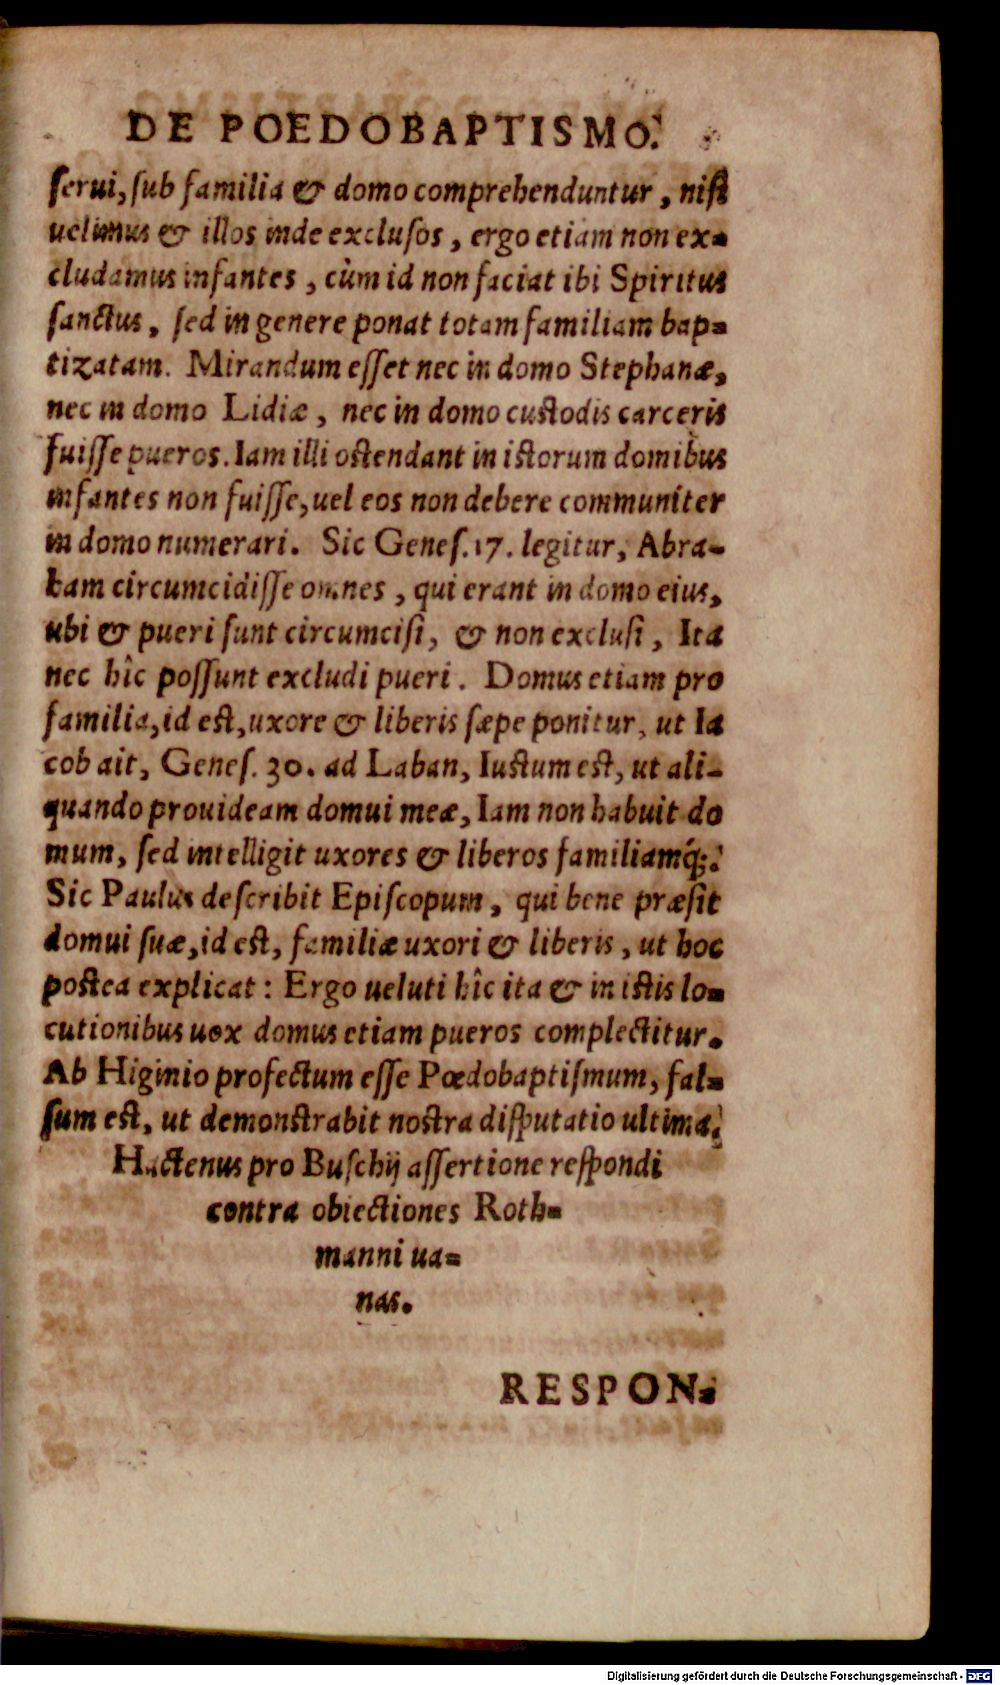 DE POEDOBAPTISMO.
ſerui, ſub familia & domo comprehenduntur, niſi
uelimus & illos inde excluſos, ergo etiam non ex-
cludamus infantes, cùm id non faciat ibi Spiritus
ſanctus, ſed in genere ponat totam familiam bap-
tizatam. Mirandum eſſet nec in domo Stephanæ,
nec in domo Lidiæ, nec in domo cuſtodis carceris
fuiſſe pueros. Iam illi oſtendant in iſtorum domibus
infantes non fuiſſe, uel eos non debere communiter
in domo numerari. Sic Geneſ. 17. legitur, Abra-
ham circumcidiſſe omnes, qui erant in domo eius,
ubi & pueri ſunt circumciſi, & non excluſi, Ita
nec hîc poſſunt excludi pueri. Domus etiam pro
familia, id eſt, uxore & liberis ſæpe ponitur, ut Ia
cob ait, Geneſ. 30. ad Laban, Iuſtum eſt, ut ali-
quando prouideam domui meæ, Iam non habuit do
mum, ſed intelligit uxores & liberos familiamq́;.
Sic Paulus deſcribit Epiſcopum, qui bene præſit
domui ſuæ, id eſt, familiæ uxori & liberis, ut hoc
poſtea explicat: Ergo ueluti hîc ita & in iſtis lo-
cutionibus uox domus etiam pueros complectitur.
Ab Higinio profectum eſſe Pœdobaptiſmum, fal-
ſum eſt, ut demonſtrabit noſtra diſputatio ultima.
Hactenus pro Buſchij aſſertione reſpondi
contra obiectiones Roth-
manni ua-
nas.
RESPON-
Digitalisierung gefördert durch die Deutsche Forschungsgemeinschaft - DFG